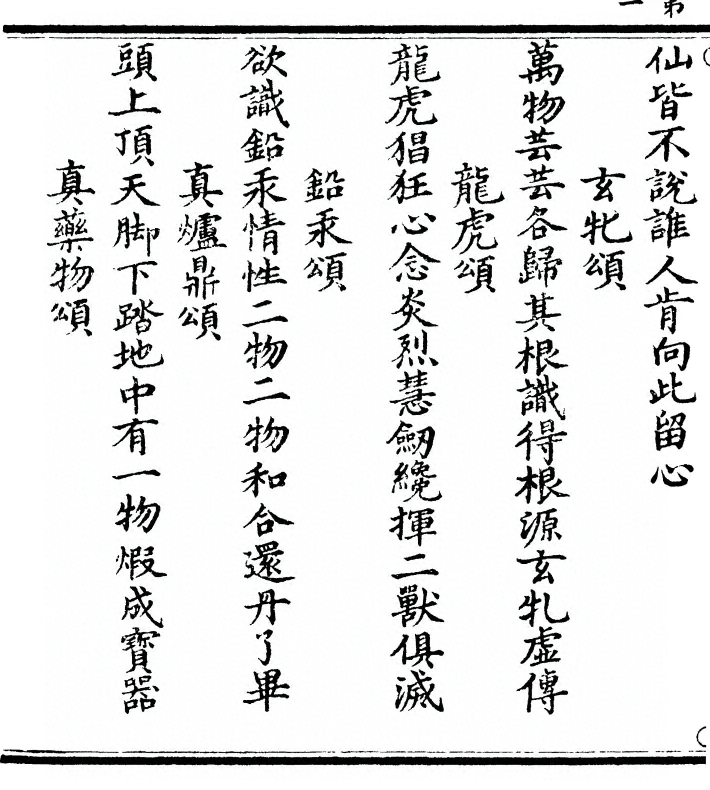 第一
仙皆不說誰人肯向此留心
玄牝頌
萬物芸芸各歸其根識得根源玄牝虛傳
龍虎頌
龍虎猖狂心念炎烈慧劒纔揮二獸俱滅
鉛汞頌
欲識鉛汞情性二物二物和合還丹了畢
真爐鼎頌
頭上頂天脚下踏地中有一物煆成寶器
真藥物頌